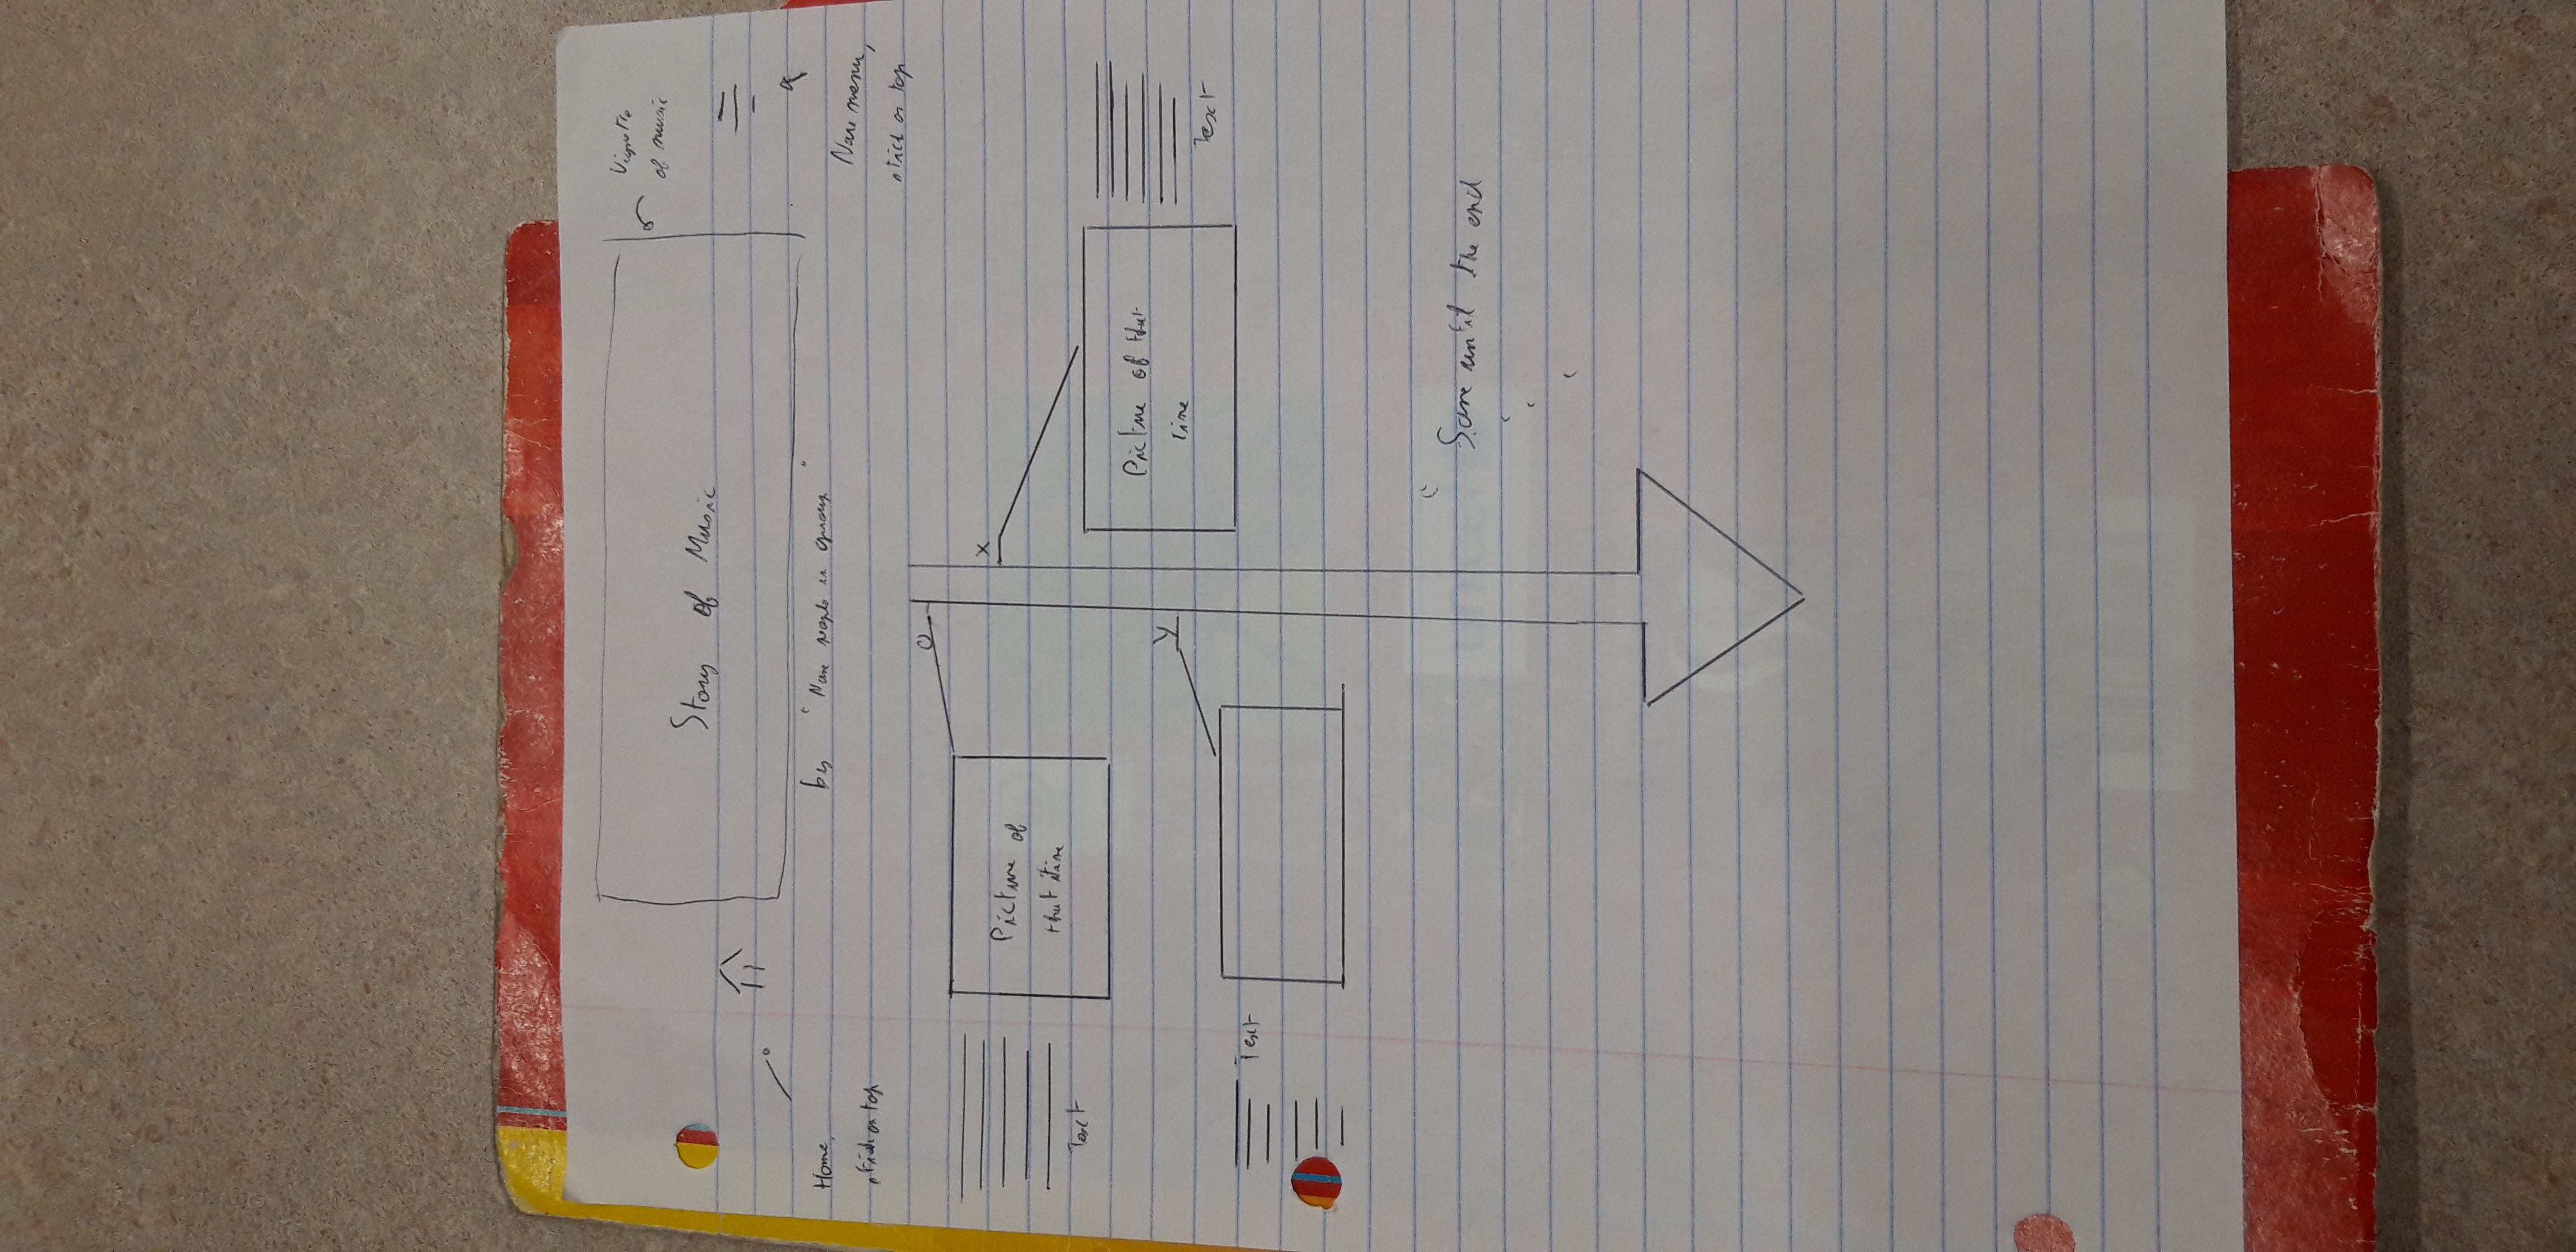 Vignette
of music
Story of Music
by "Name people in group"
Home,
stick on top
menu,
stick on top
O
X
Picture of
that time
Text
Picture of that
time
Text
Y
Text
Same until the end